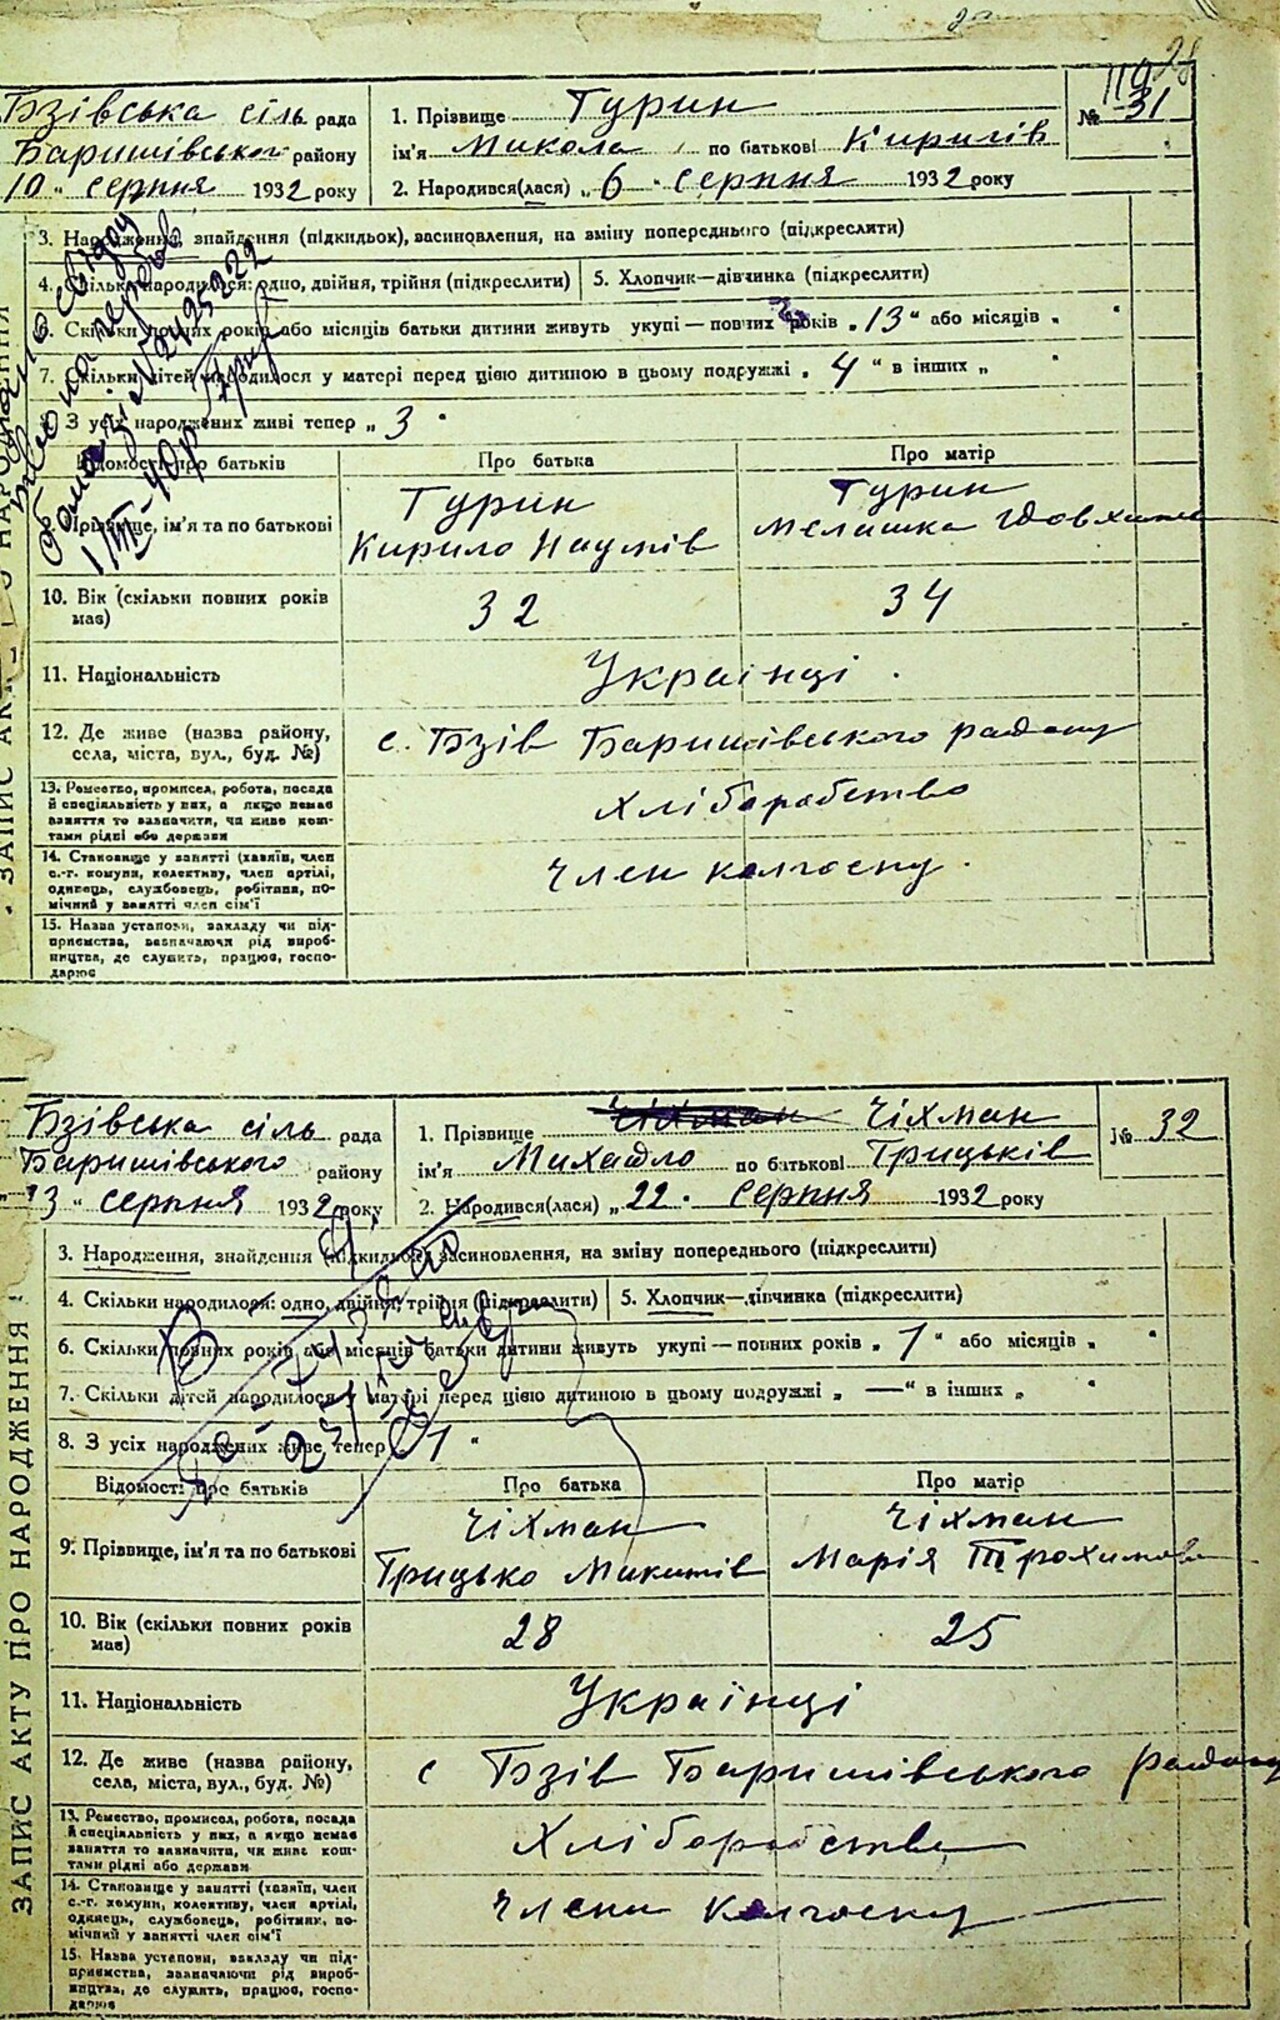 28
110
Бзівська сіль рада
Баришівського району
10 " серпня 1932 року
1. Прізвище Турин
ім'я Микола по батькові Кирилів
2. Народився(лася) „ 6 " серпня 1932 року
№ 31
3. Народження, знайдення (підкидьок), засиновлення, на зміну попереднього (підкреслити)
4. Скільки народилося: одно, двійня, трійня (підкреслити) 5. Хлопчик—дівчинка (підкреслити)
6. Скільки повних років або місяців батьки дитини живуть укупі — повних років „ 13 " або місяців „ "
7. Скільки дітей народилося у матері перед цією дитиною в цьому подружжі „ 4 " в інших „ "
8. З усіх народжених живі тепер „ 3 "
№ 2425222
Відомості про батьків Про батька Про матір
9. Прізвище, ім'я та по батькові
Турин
Кирило Наумів
Турин
Мелашка Явдохимі
10. Вік (скільки повних років має)
32 34
11. Національність Українці
12. Де живе (назва району,
села, міста, вул., буд. №)
с. Бзів Баришівського району
13. Ремество, промисел, робота, посада
й спеціяльність у них, а якщо немає
заняття то зазначити, чи живе кош-
тами рідні або держави
Хліборобство
14. Становище у занятті (хазяїн, член
с.-г. комуни, колективу, член артілі,
одинець, службовець, робітник, по-
мічний у занятті член сім'ї
член колгоспу
15. Назва установи, закладу чи під-
приємства, зазначаючи рід вироб-
ництва, де служить, працює, госпо-
дарює
ЗАПИС АКТУ ПРО НАРОДЖЕННЯ
Бзівська сіль рада
Баришівського району
" 23 " серпня 1932 року
1. Прізвище Чіхман Чіхман
ім'я Михайло по батькові Грицьків
2. Народився(лася) „ 22 " Серпня 1932 року
№ 32
3. Народження, знайдення (підкидьок) засиновлення, на зміну попереднього (підкреслити)
4. Скільки народилося: одно, двійня, трійня (підкреслити) 5. Хлопчик—дівчинка (підкреслити)
6. Скільки повних років або місяців батьки дитини живуть укупі — повних років „ 1 " або місяців „ "
7. Скільки дітей народилося у матері перед цією дитиною в цьому подружжі „ — " в інших „ "
8. З усіх народжених живе тепер „ 1 "
Відомості про батьків Про батька Про матір
9. Прізвище, ім'я та по батькові
Чіхман
Грицько Микитів
Чіхман
Марія Трохимова
10. Вік (скільки повних років має)
28 25
11. Національність Українці
12. Де живе (назва району,
села, міста, вул., буд. №)
с Бзів Баришівського району
13. Ремество, промисел, робота, посада
й спеціяльність у них, а якщо немає
заняття то зазначити, чи живе кош-
тами рідні або держави
Хліборобство
14. Становище у занятті (хазяїн, член
с.-г. комуни, колективу, член артілі,
одинець, службовець, робітник, по-
мічний у занятті член сім'ї
члени колгоспу
15. Назва установи, закладу чи під-
приємства, зазначаючи рід вироб-
ництва, де служить, працює, госпо-
дарює
ЗАПИС АКТУ ПРО НАРОДЖЕННЯ